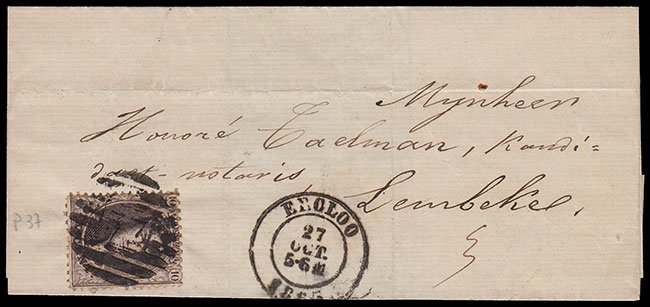 Mynheer
Honoré Taelman, Kandi=
daet-notaris
Lembeke,
P37
10 10
EECLOO
27
OCT.
5-6 M